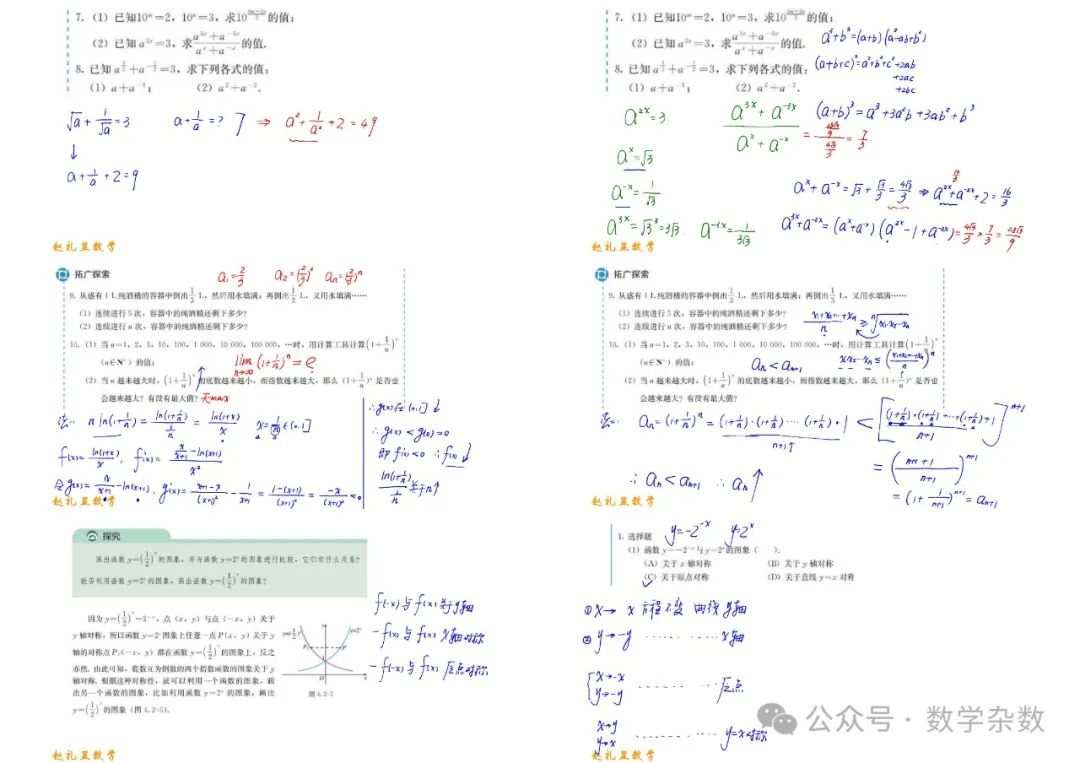 7. (1) 已知10ᵐ=2, 10ⁿ=3, 求10^((3m-2n)/2)的值;
(2) 已知a²ˣ=3, 求(a³ˣ+a⁻³ˣ)/(aˣ+a⁻ˣ)的值.
8. 已知a^(1/2)+a^(-1/2)=3, 求下列各式的值:
(1) a+a⁻¹; (2) a²+a⁻².
√a+1/√a=3 a+1/a=? 7 ⇒ a²+1/a²+2=49
↓
a+1/a+2=9
赵礼显数学
7. (1) 已知10ᵐ=2, 10ⁿ=3, 求10^((3m-2n)/2)的值;
(2) 已知a²ˣ=3, 求(a³ˣ+a⁻³ˣ)/(aˣ+a⁻ˣ)的值.
a³+b³=(a+b)(a²-ab+b²)
8. 已知a^(1/2)+a^(-1/2)=3, 求下列各式的值:
(a+b+c)²=a²+b²+c²+2ab
+2ac
+2bc
(1) a+a⁻¹; (2) a²+a⁻².
a²ˣ=3
(a³ˣ+a⁻³ˣ)/(aˣ+a⁻ˣ) = (28√3/9)/(4√3/3) = 7/3
(a+b)³=a³+3a²b+3ab²+b³
aˣ=√3
a⁻ˣ=1/√3
aˣ+a⁻ˣ=√3+√3/3=4√3/3 ⇒ a²ˣ+a⁻²ˣ+2=16/3
a³ˣ=√3³=3√3. a⁻³ˣ=1/(3√3)
a³ˣ+a⁻³ˣ=(aˣ+a⁻ˣ)(a²ˣ-1+a⁻²ˣ)=4√3/3×7/3=28√3/9
赵礼显数学
拓广探索
a₁=2/3 a₂=(2/3)² aₙ=(2/3)ⁿ
9. 从盛有1 L纯酒精的容器中倒出1/3 L, 然后用水填满; 再倒出1/3 L, 又用水填满……
(1) 连续进行5次, 容器中的纯酒精还剩下多少?
(2) 连续进行n次, 容器中的纯酒精还剩下多少?
10. (1) 当n=1, 2, 3, 10, 100, 1 000, 10 000, 100 000, …时, 用计算工具计算(1+1/n)ⁿ
(n∈N*) 的值;
lim n→∞ (1+1/n)ⁿ=e
(2) 当n越来越大时, (1+1/n)ⁿ的底数越来越小, 而指数越来越大, 那么(1+1/n)ⁿ是否也
会越来越大? 有没有最大值?
无max
法一 n ln(1+1/n)=ln(1+1/n)/(1/n)=ln(1+x)/x x=1/n∈(0,1]
f(x)=ln(1+x)/x, f'(x)=(x/(x+1)-ln(x+1))/x²
令g(x)=x/(x+1)-ln(x+1), g'(x)=(x+1-x)/(x+1)²-1/(x+1)=(1-(x+1))/(x+1)²=-x/(x+1)²<0
∴g(x)在(0,1]↓
∴g(x)<g(0)=0
即f'(x)<0 ∴f(x)↓
ln(1+1/n)/(1/n)关于n↑
赵礼显数学
拓广探索
9. 从盛有1 L纯酒精的容器中倒出1/3 L, 然后用水填满; 再倒出1/3 L, 又用水填满……
(1) 连续进行5次, 容器中的纯酒精还剩下多少?
(2) 连续进行n次, 容器中的纯酒精还剩下多少?
(x₁+x₂+…+xₙ)/n≥ⁿ√(x₁x₂…xₙ)
10. (1) 当n=1, 2, 3, 10, 100, 1 000, 10 000, 100 000, …时, 用计算工具计算(1+1/n)ⁿ
(n∈N*) 的值;
aₙ<aₙ₊₁ x₁x₂…xₙ≤((x₁+x₂+…+xₙ)/n)ⁿ
(2) 当n越来越大时, (1+1/n)ⁿ的底数越来越小, 而指数越来越大, 那么(1+1/n)ⁿ是否也
会越来越大? 有没有最大值?
法二: aₙ=(1+1/n)ⁿ=(1+1/n)·(1+1/n)·…·(1+1/n)·1<[((1+1/n)+(1+1/n)+…+(1+1/n)+1)/(n+1)]ⁿ⁺¹
n+1个
=((n+1+1)/(n+1))ⁿ⁺¹
∴aₙ<aₙ₊₁ ∴aₙ↑
=(1+1/(n+1))ⁿ⁺¹=aₙ₊₁
赵礼显数学
探究
画出函数y=(1/2)ˣ的图象, 并与函数y=2ˣ的图象进行比较, 它们有什么关系?
能否利用函数y=2ˣ的图象, 画出函数y=(1/2)ˣ的图象?
因为y=(1/2)ˣ=2⁻ˣ, 点(x, y)与点(-x, y)关于
y轴对称, 所以函数y=2ˣ图象上任意一点P(x, y)关于y
轴的对称点P₁(-x, y)都在函数y=(1/2)ˣ的图象上, 反之
亦然. 由此可知, 底数互为倒数的两个指数函数的图象关于y
轴对称. 根据这种对称性, 就可以利用一个函数的图象, 画
出另一个函数的图象, 比如利用函数y=2ˣ的图象, 画出
y=(1/2)ˣ的图象(图4.2-5).
y=(1/2)ˣ y y=2ˣ
P₁ P
1
O x
图4.2-5
f(-x)与f(x)关于y轴
-f(x)与f(x) x轴对称
-f(-x)与f(x) 原点对称
赵礼显数学
y=-2⁻ˣ y=2ˣ
1. 选择题
(1) 函数y=-2⁻ˣ与y=2ˣ的图象( ).
(A) 关于x轴对称 (B) 关于y轴对称
(C) 关于原点对称 (D) 关于直线y=x对称
① x→-x 方程不变 曲线y轴
② y→-y …… x轴
{x→-x
y→-y …… 原点
x→y
y→x …… y=x对称
赵礼显数学
公众号·数学杂数